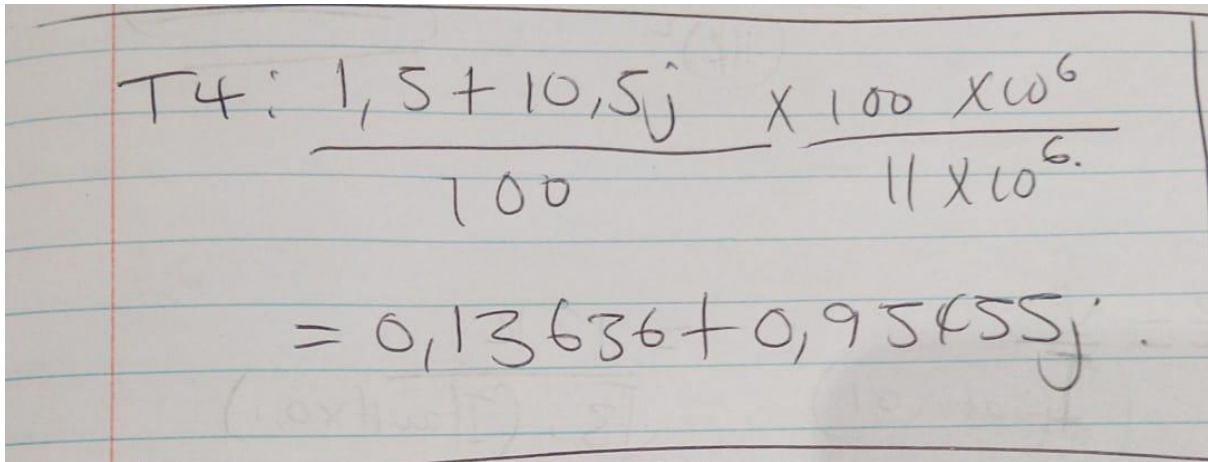 T4: 1,5 + 10,5j / 100 × 100 × 10^6 / 11 × 10^6.
= 0,13636 + 0,95455j.